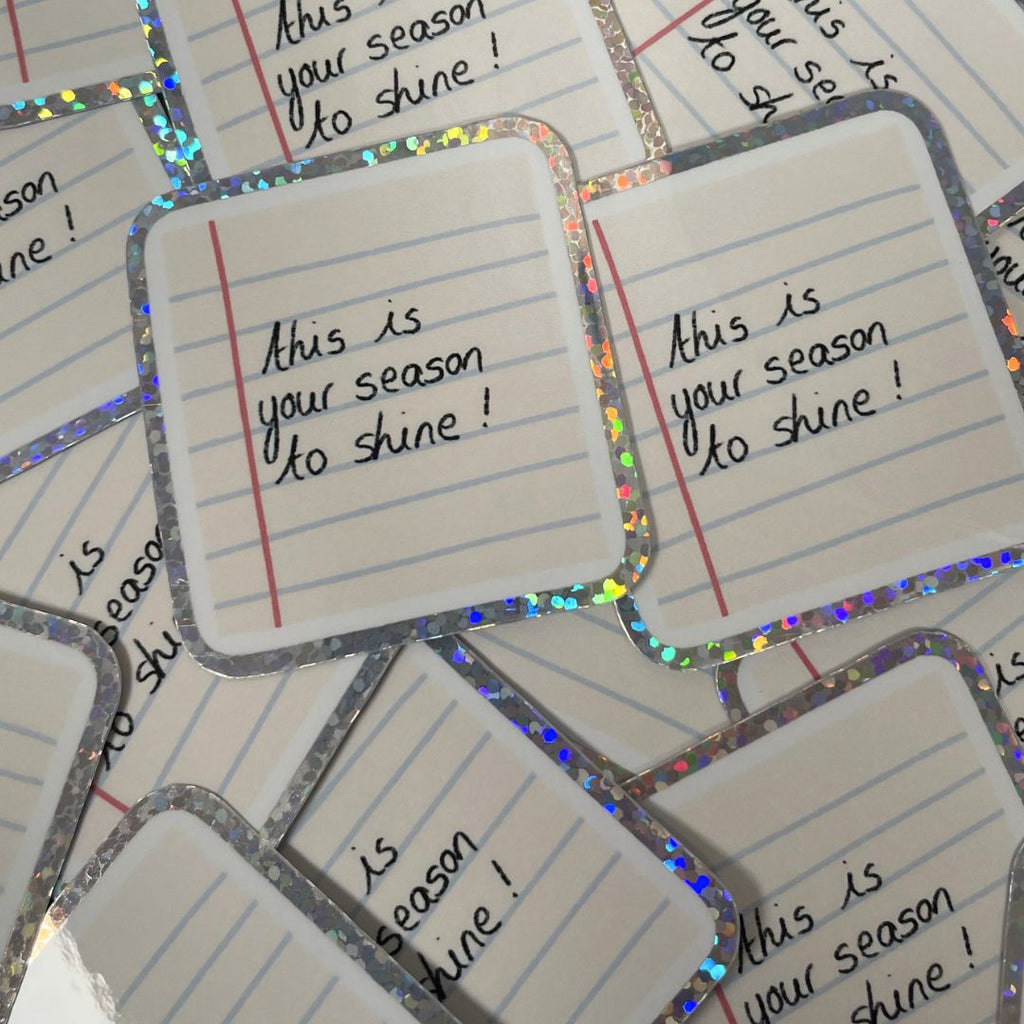 this is
your season
to shine !
this is
your season
to sh
son
ine !
this is
your season
to shine !
this is
your season
to shine !
is
season
to shi
is
season
shine !
this is
your season
shine !
is